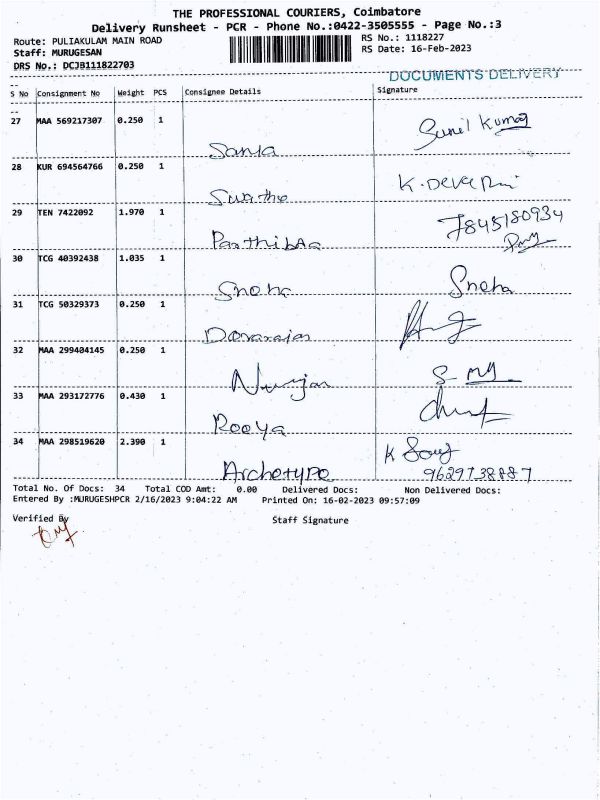 THE PROFESSIONAL COURIERS, Coimbatore
Delivery Runsheet - PCR - Phone No.:0422-3505555 - Page No.:3
Route: PULIAKULAM MAIN ROAD
RS No.: 1118227
Staff: MURUGESAN
RS Date: 16-Feb-2023
DRS No.: DCJB111822703
DOCUMENTS DELIVERY
S No Consignment No Weight PCS Consignee Details Signature
27 MAA 569217307 0.250 1 Sunil Kumar
28 KUR 694564766 0.250 1
29 TEN 7422092 1.970 1 7845180934
30 TCG 40392438 1.035 1 Sneha Sneha
31 TCG 50329373 0.250 1
32 MAA 299404145 0.250 1
33 MAA 293172776 0.430 1 Rooya
34 MAA 298519620 2.390 1 Archetype 9629738887
Total No. Of Docs: 34 Total COD Amt: 0.00 Delivered Docs: Non Delivered Docs:
Entered By :MURUGESHPCR 2/16/2023 9:04:22 AM Printed On: 16-02-2023 09:57:09
Verified By Staff Signature